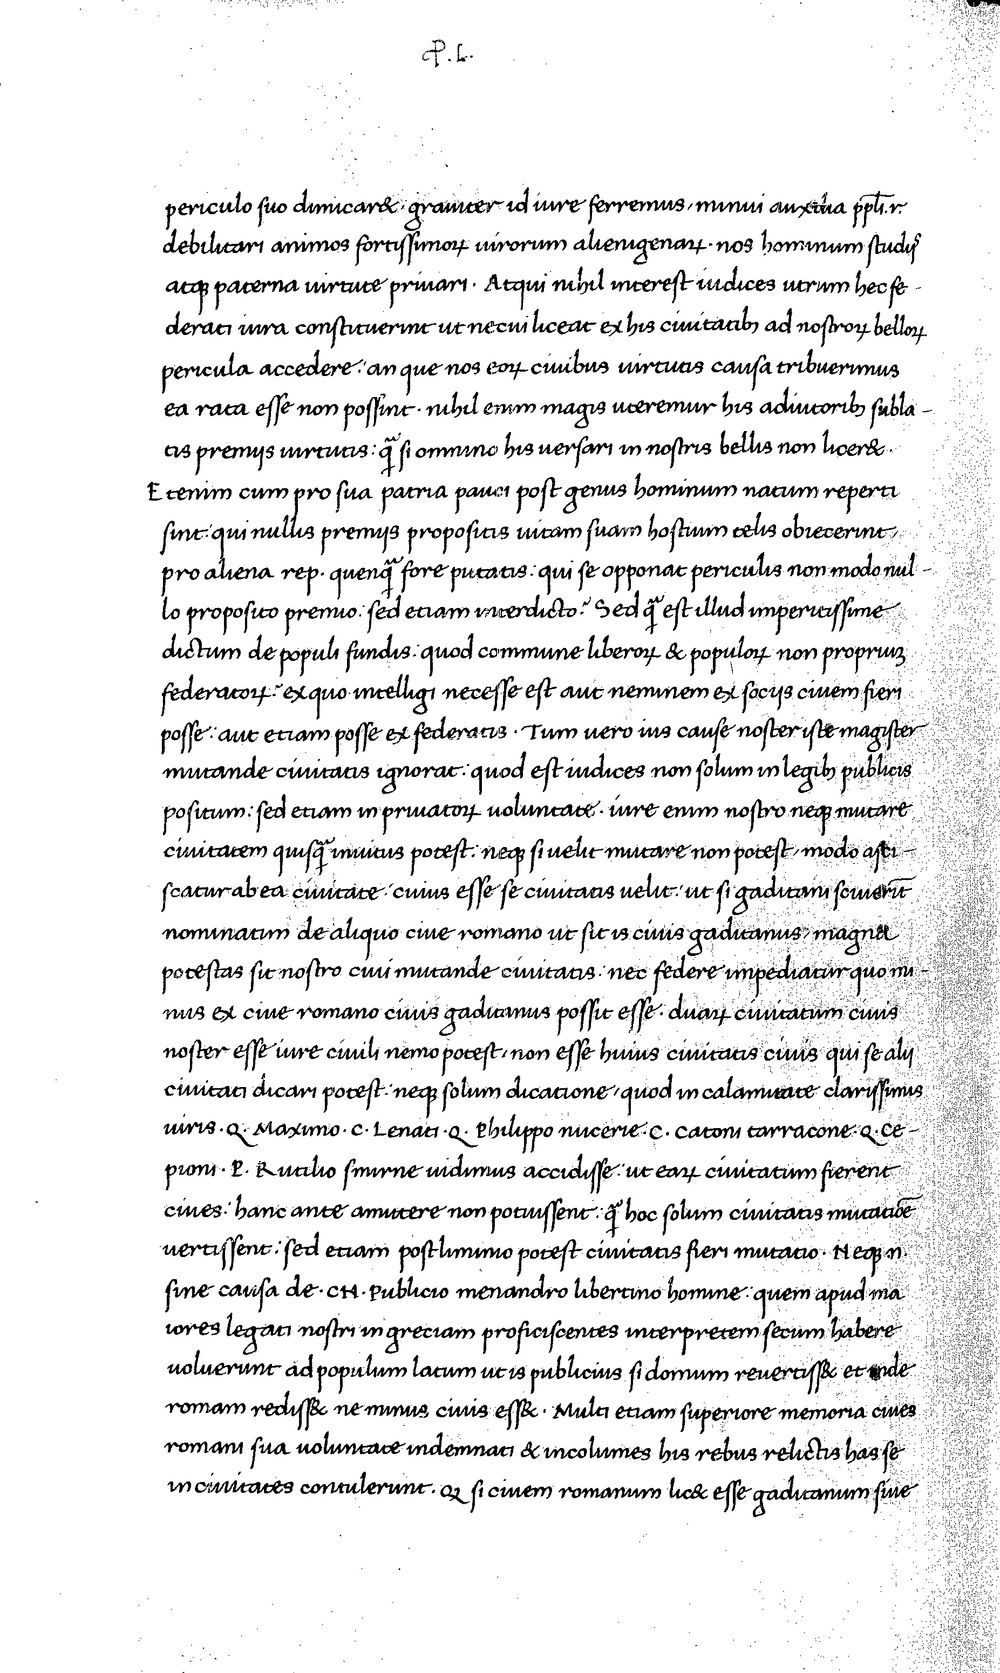 P. L.
periculo suo dimicar&, grauiter id iure ferremus, minui auxilia ppl̄i.r.
debilitari animos fortissimoꝝ uirorum alienigenaꝝ. nos hominum studijs
atqꝫ paterna uirtute priuari. Atqui nihil interest iudices utrum hec fe-
derati iura constituerint ut necui liceat ex his ciuitatibꝫ ad nostroꝝ belloꝝ
pericula accedere: an que nos eoꝝ ciuibus uirtutis causa tribuerimus
ea rata esse non possint. nihil enim magis uteremur his adiutoribꝫ subla-
tis premijs uirtutis: q̃ si omnino his uersari in nostris bellis non licer&.
Etenim cum pro sua patria pauci post genus hominum natum reperti
sint: qui nullis premijs propositis uitam suam hostium telis obiecerint,
pro aliena rep. quenq̃ fore putatis: qui se opponat periculis non modo nul-
lo proposito premio: sed etiam interdicto? Sed q̃ est illud imperitissime
dictum de populi fundis: quod commune liberoꝝ & populoꝝ non propriuꝫ
federatoꝝ: ex quo intelligi necesse est aut neminem ex socijs ciuem fieri
posse: aut etiam posse ex federatis. Tum uero ius cause noster iste magister
mutande ciuitatis ignorat: quod est iudices non solum in legibꝫ publicis
positum: sed etiam in priuatoꝝ uoluntate. iure enim nostro neqꝫ mutare
ciuitatem quisq̃ inuitus potest: neqꝫ si uelit mutare non potest, modo asci-
scatur ab ea ciuitate: cuius esse se ciuitatis uelit: ut si gaditani sciuerīt
nominatim de aliquo ciue romano ut sit is ciuis gaditanus, magna
potestas sit nostro ciui mutande ciuitatis: nec federe impediatur quo mi-
nus ex ciue romano ciuis gaditanus possit esse. duaꝝ ciuitatum ciuis
noster esse iure ciuili nemo potest, non esse huius ciuitatis ciuis qui se alij
ciuitati dicari potest: neqꝫ solum dicatione, quod in calamitate clarissimus
uiris. Q. Maximo. C. Lenati. Q. Philippo nucerie. C. Catoni tarracone. Q. Ce-
pioni. P. Rutilio smirne uidimus accidisse: ut eaꝝ ciuitatum fierent
ciues: hanc ante amittere non potuissent: q̃ hoc solum ciuitatis mutatiōe
uertissent: sed etiam postliminio potest ciuitatis fieri mutatio. Neqꝫ .n.
sine causa de. CN. Publicio menandro libertino homine: quem apud ma
iores legati nostri in greciam proficiscentes interpretem secum habere
uoluerunt ad populum latum ut is publicius si domum reuertiss& et inde
romam rediss& ne minus ciuis ess&. Multi etiam superiore memoria ciues
romani sua uoluntate indemnati & incolumes his rebus relictis has se
in ciuitates contulerunt. Qꝫ si ciuem romanum lic& esse gaditanum siue